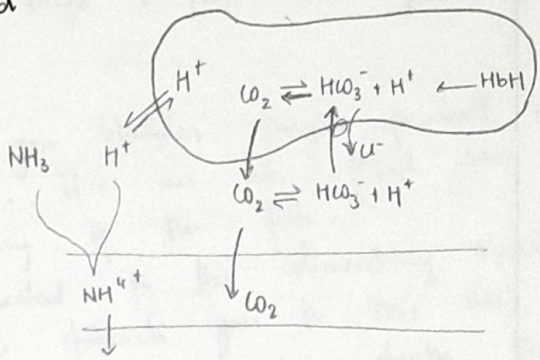 H⁺ CO₂ ⇌ HCO₃⁻ + H⁺ ← HbH
NH₃ H⁺ Cl⁻
CO₂ ⇌ HCO₃⁻ + H⁺
NH⁴⁺ CO₂